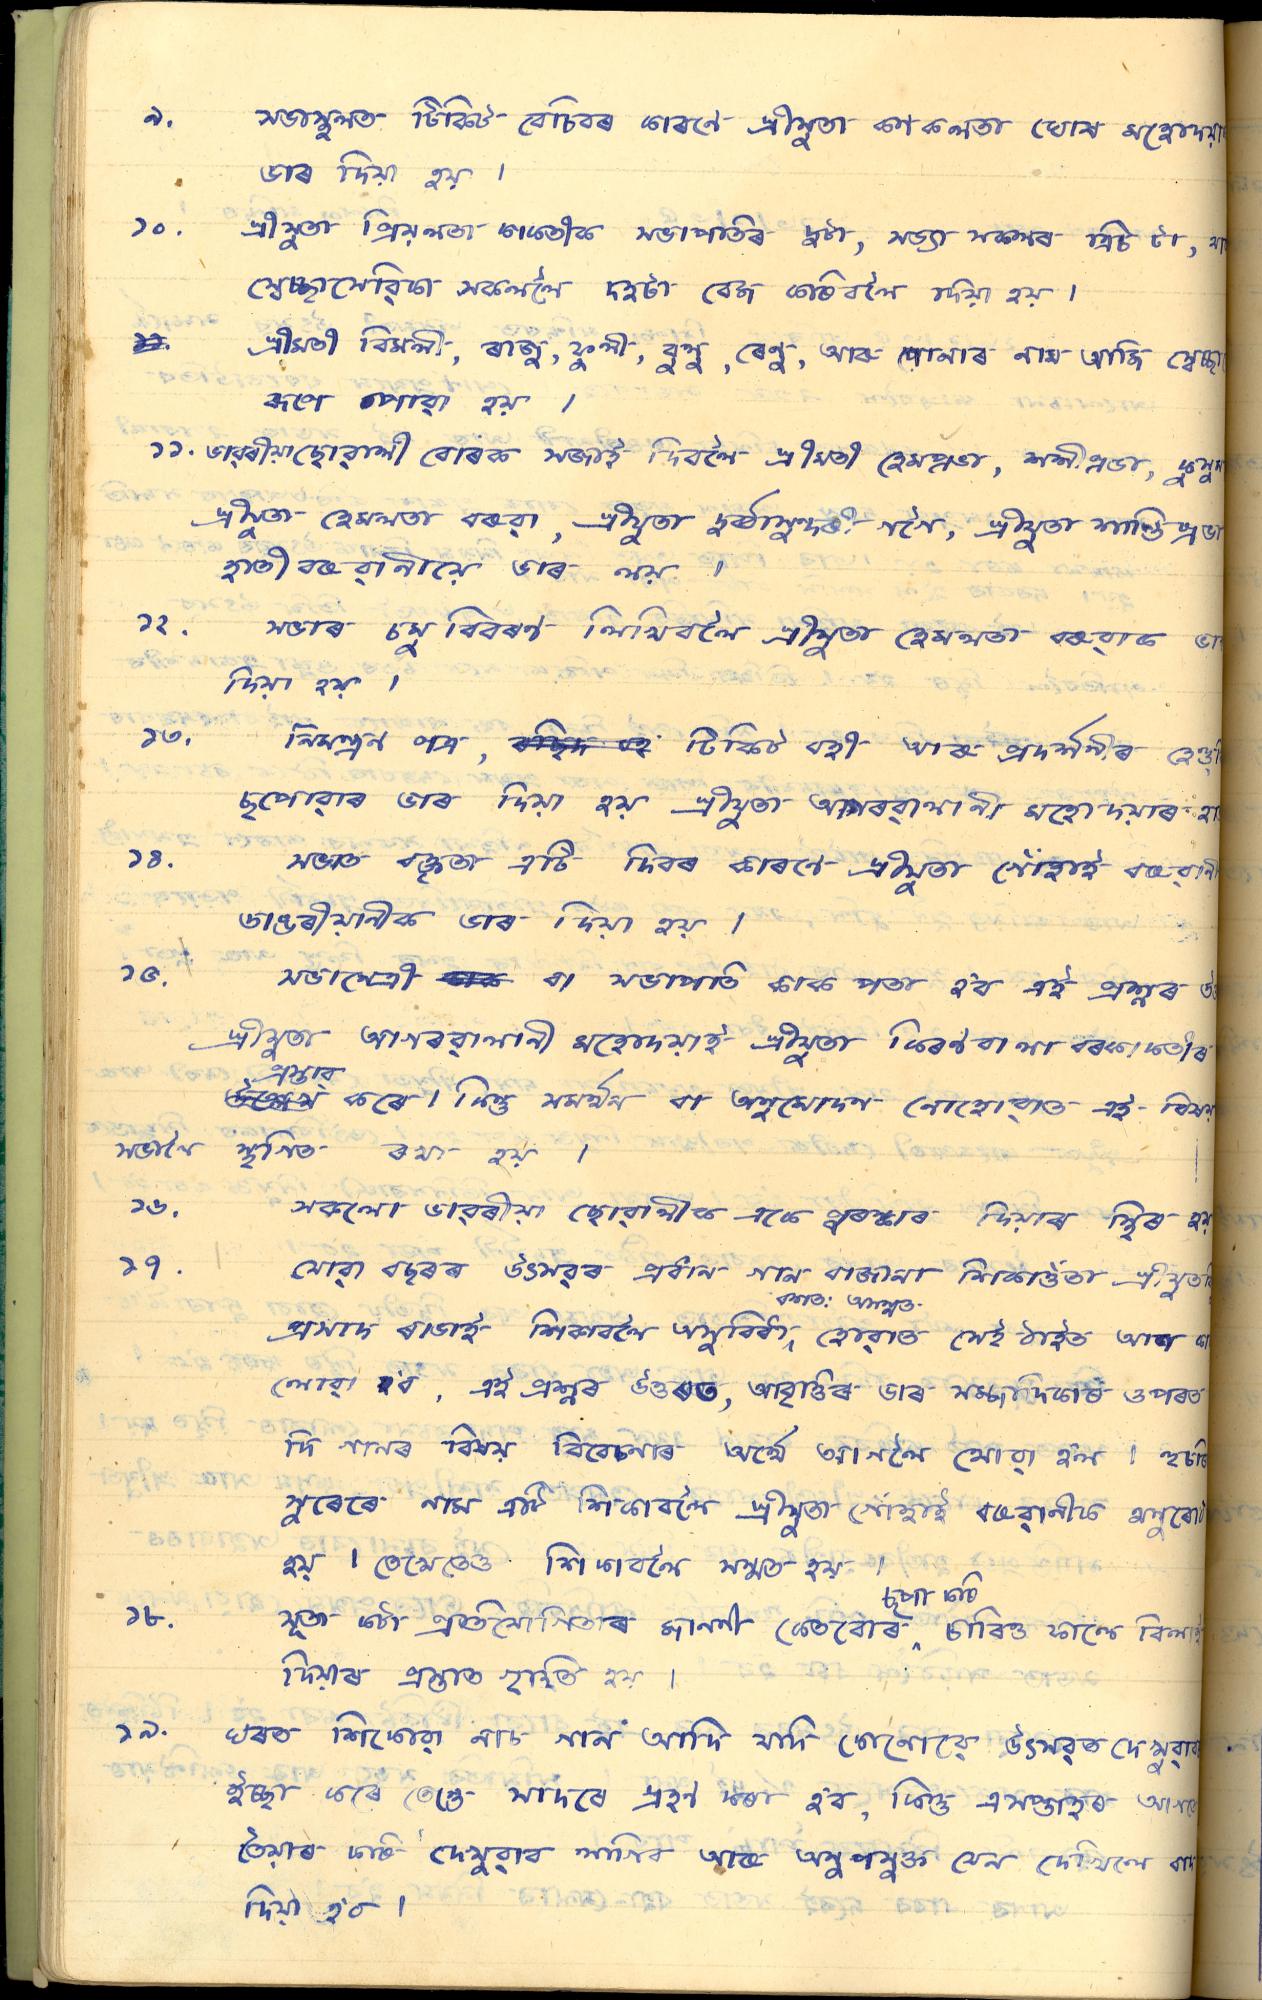 ৯. সভাস্থলত টিকিট বেচিবৰ কাৰণে শ্ৰীযুতা কাকলতা ঘোষ মহোদয়াৰ
ভাৰ দিয়া হয় ।
১০. শ্ৰীযুতা প্ৰিয়লতা কাকতীক সভাপতিৰ দুটা, সভ্যা সকলৰ ত্ৰিচ টা,
স্বেচ্ছাসেৱিকা সকললৈ দহটা বেজ কাটিবলৈ দিয়া হয় ।
শ্ৰীমতী বিমলী, ৰাজু, ফুলী, বুলু, ৰেণু, আৰু সোনাৰ নাম আজি
ৰূপে পোৱা হয় ।
১১. ভাৱৰীয়া ছোৱালী বোৰক সজাই দিবলৈ শ্ৰীমতী হেমপ্ৰভা, শশীপ্ৰভা,
শ্ৰীযুতা হেমলতা বৰুৱা, শ্ৰীযুতা দুৰ্গাসুন্দৰী গগৈ, শ্ৰীযুতা শান্তি প্ৰভা
হাতীবৰুৱানীয়ে ভাৰ লয় ।
১২. সভাৰ চমু বিবৰণ লিখিবলৈ শ্ৰীযুতা হেমলতা বৰুৱাক
দিয়া হয় ।
১৩. নিমন্ত্ৰণ পত্ৰ, টিকিট বহী আৰু প্ৰদৰ্শনীৰ
ছপোৱাৰ ভাৰ দিয়া হয় শ্ৰীযুতা আগৰৱালানী মহোদয়াৰ
১৪. সভাত বক্তৃতা এটি দিবৰ কাৰণে শ্ৰীযুতা গোঁহাই বৰুৱানী
ভাণ্ডৰীয়ানীক ভাৰ দিয়া হয় ।
১৫. সভানেত্ৰী বা সভাপতি কাক পতা হ'ব এই প্ৰশ্নৰ
শ্ৰীযুতা আগৰৱালানী মহোদয়াই শ্ৰীযুতা কিৰণবালা বৰকাকতীৰ
প্ৰস্তাৱ
কৰে । কিন্তু সমৰ্থন বা অনুমোদন নোহোৱাত এই বিষয়
সভালৈ স্থগিত ৰখা হয় ।
১৬. সকলো ভাৱৰীয়া ছোৱালীক একে পুৰস্কাৰ দিয়াৰ স্থিৰ হয়
১৭. যোৱা বছৰৰ উৎসৱৰ প্ৰধান গান বাজানা শিকাওঁতা
বশত: অসন্মত
প্ৰসাদ ৰাভাই শিকাবলৈ অসুবিধা হোৱাত সেই ঠাইত আন
লোৱা হ'ব, এই প্ৰশ্নৰ উত্তৰত, আবৃত্তিৰ ভাৰ সম্পাদিকাৰ ওপৰত
দি গানৰ বিষয় বিবেচনাৰ অৰ্থে আগলৈ থোৱা হ'ল ।
সুৰেৰে নাম এটি শিকাবলৈ শ্ৰীযুতা গোঁহাই বৰুৱানীক
হয় । তেখেতেও শিকাবলৈ সন্মত হয় ।
ছপা কৰি
১৮. সূতা কটা প্ৰতিযোগিতাৰ জাননী কেতবোৰ চাৰিও ফালে বিলাই
দিয়াৰ প্ৰস্তাৱ গৃহীত হয় ।
১৯. ঘৰত শিকোৱা নাচ গান আদি যদি কোনোৱে উৎসৱত দেখুৱাব
ইচ্ছা কৰে তেন্তে সাদৰে গ্ৰহণ কৰা হ'ব, কিন্তু এসপ্তাহৰ আগতে
তৈয়াৰ কৰি দেখুৱাব লাগিব আৰু অনুপযুক্ত যেন দেখিলে বাদ
দিয়া হ'ব ।